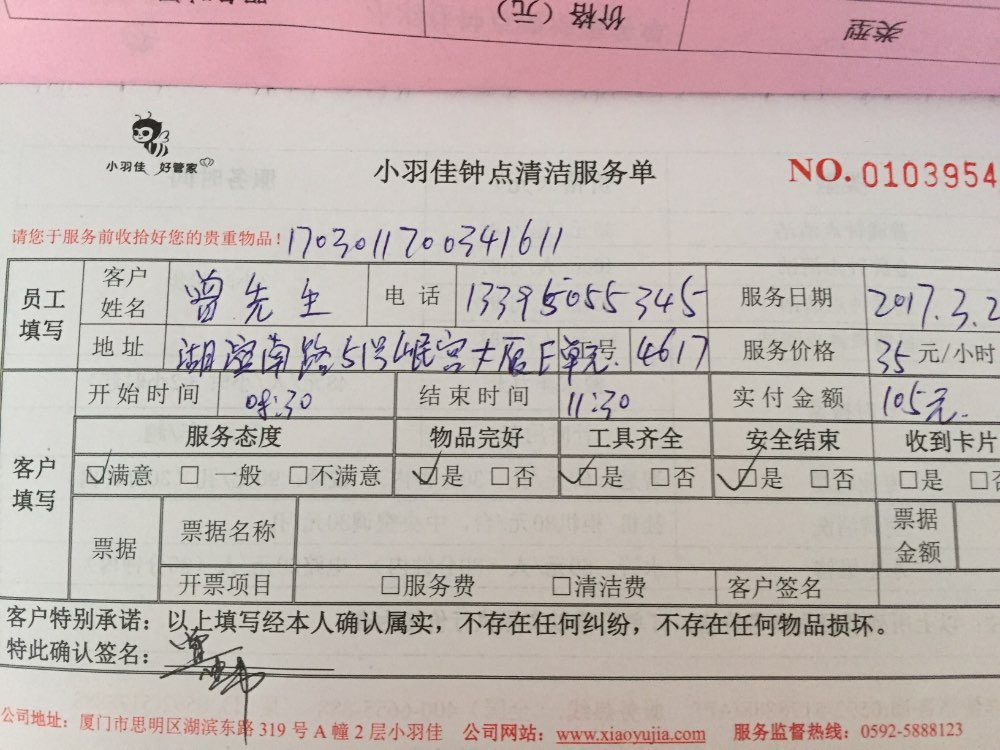 类型 价格（元）
小羽佳 好管家
小羽佳钟点清洁服务单 NO. 0103954
请您于服务前收拾好您的贵重物品！ 1703011700341611
员工填写 客户姓名 曾先生 电话 13395055345 服务日期 2017.3.2
地址 湖滨南路51号岷宫大厦E单元 号 4617 服务价格 35元/小时
客户填写 开始时间 08:30 结束时间 11:30 实付金额 105元.
服务态度 物品完好 工具齐全 安全结束 收到卡片
☑满意 □一般 □不满意 ☑是 □否 ☑是 □否 ☑是 □否 □是 □否
票据 票据名称 票据金额
开票项目 □服务费 □清洁费 客户签名
客户特别承诺：以上填写经本人确认属实，不存在任何纠纷，不存在任何物品损坏。
特此确认签名：
公司地址：厦门市思明区湖滨东路 319 号 A 幢 2 层小羽佳 公司网站：www.xiaoyujia.com 服务监督热线：0592-5888123